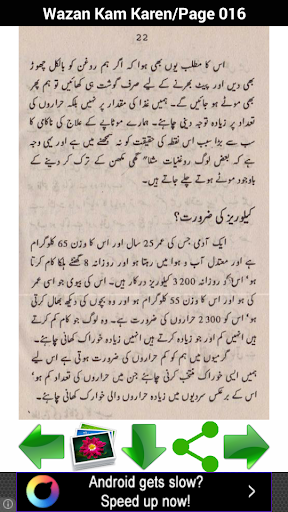 Wazan Kam Karen/Page 016
22
اس کا مطلب یوں بھی ہوا کہ اگر ہم روغن کو بالکل چھوڑ
بھی دیں اور پیٹ بھرنے کے لیے صرف گوشت ہی کھائیں تو ہم پھر
بھی موٹے ہو جائیں گے۔ ہمیں غذا کی مقدار پر نہیں بلکہ حراروں کی
تعداد پر زیادہ توجہ دینی چاہئے۔ ہمارے موٹاپے کے علاج کی ناکامی کا
سب سے بڑا سبب اس نقطہ کی حقیقت کو نہ سمجھنے میں ہے اور یہی وجہ
ہے کہ بعض لوگ روغنیات مثلاً گھی مکھن کے ترک کر دینے کے
باوجود موٹے ہوتے چلے جاتے ہیں۔
کیلوریز کی ضرورت؟
ایک آدمی جس کی عمر 25 سال اور اس کا وزن 65 کلوگرام
ہے اور معتدل آب و ہوا میں رہتا ہو اور روزانہ 8 گھنٹے ہلکا کام کرتا
ہو' اس کو روزانہ 3200 کیلوریز درکار ہیں۔ اس کی بیوی جو اسی عمر
کی ہو اور اس کا وزن 55 کلوگرام ہے اور وہ بچوں کی دیکھ بھال کرتی
ہو اس کو 2300 حراروں کی ضرورت ہے۔ وہ لوگ جو کام کم کرتے
ہیں انہیں کم اور جو زیادہ کام کرتے ہیں انہیں زیادہ خوراک کھانی چاہئے۔
گرمیوں میں ہم کو کم حراروں کی ضرورت ہوتی ہے اس لیے
ہمیں ایسی خوراک منتخب کرنی چاہئے جن میں حراروں کی تعداد کم ہو'
اس کے برعکس سردیوں میں زیادہ حراروں والی خوراک کھانی چاہئے۔
Android gets slow?
Speed up now!